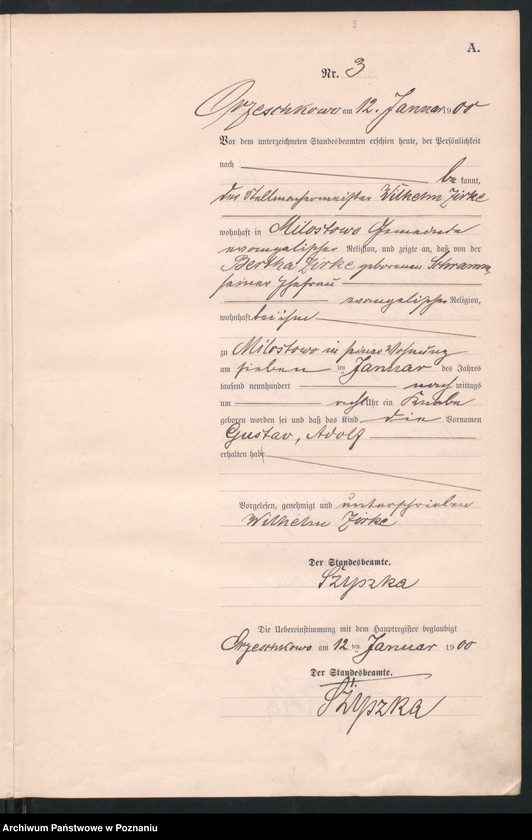 3
A.
Nr. 3
Orzeschkowo am 12. Januar 1900
Vor dem unterzeichneten Standesbeamten erschien heute, der Persönlichkeit
nach be kannt,
der Stellmachermeister Wilhelm Zirke
wohnhaft in Milostowo Gemeinde
evangelischer Religion, und zeigte an, daß von der
Bertha Zirke geborenen Schramm
seiner Ehefrau
evangelischer Religion,
wohnhaft bei ihm
zu Milostowo in seiner Wohnung
am sieben ten Januar des Jahres
tausend neunhundert nach mittags
um Uhr ein Knabe
geboren worden sei und daß das Kind die Vornamen
Gustav, Adolf
erhalten habe
Vorgelesen, genehmigt und unterschrieben
Wilhelm Zirke
Der Standesbeamte.
Szyszka
Die Uebereinstimmung mit dem Hauptregister beglaubigt
Orzeschkowo am 12 ten Januar 1900
Der Standesbeamte.
Szyszka
Archiwum Państwowe w Poznaniu